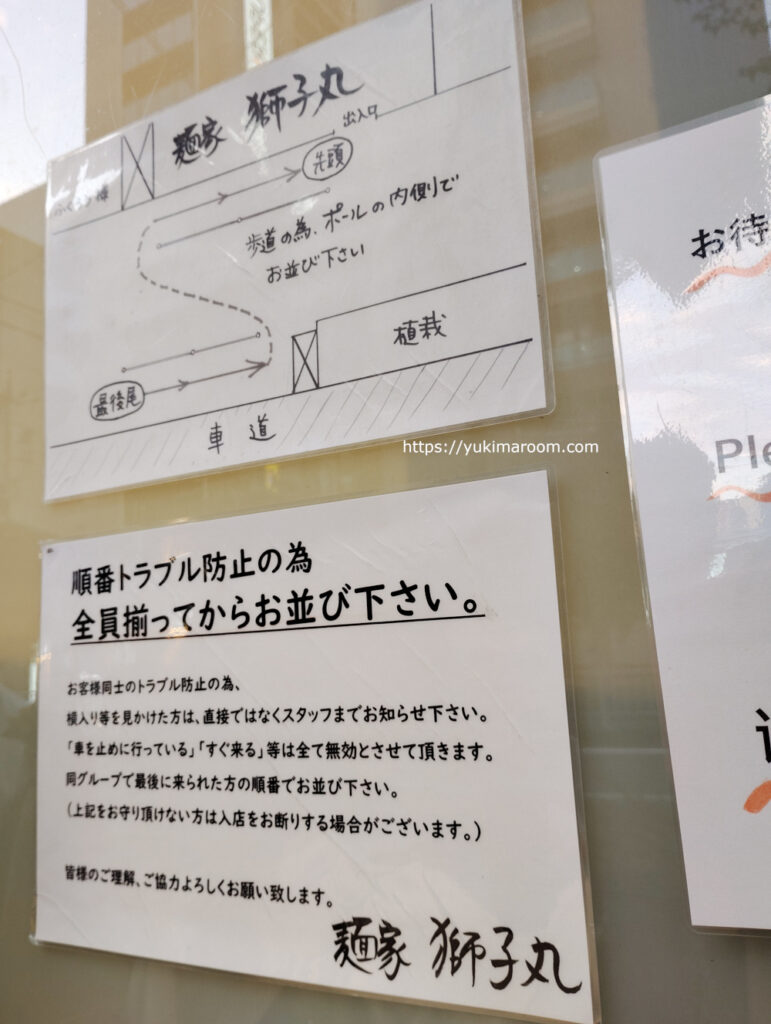 麺家 獅子丸
出入口
先頭
歩道の為、ポールの内側で
お並び下さい
植栽
最後尾
車道
https://yukimaroom.com
順番トラブル防止の為
全員揃ってからお並び下さい。
お客様同士のトラブル防止の為、
横入り等を見かけた方は、直接ではなくスタッフまでお知らせ下さい。
「車を止めに行っている」「すぐ来る」等は全て無効とさせて頂きます。
同グループで最後に来られた方の順番でお並び下さい。
(上記をお守り頂けない方は入店をお断りする場合がございます。)
皆様のご理解、ご協力よろしくお願い致します。
麺家 獅子丸
お待
Ple